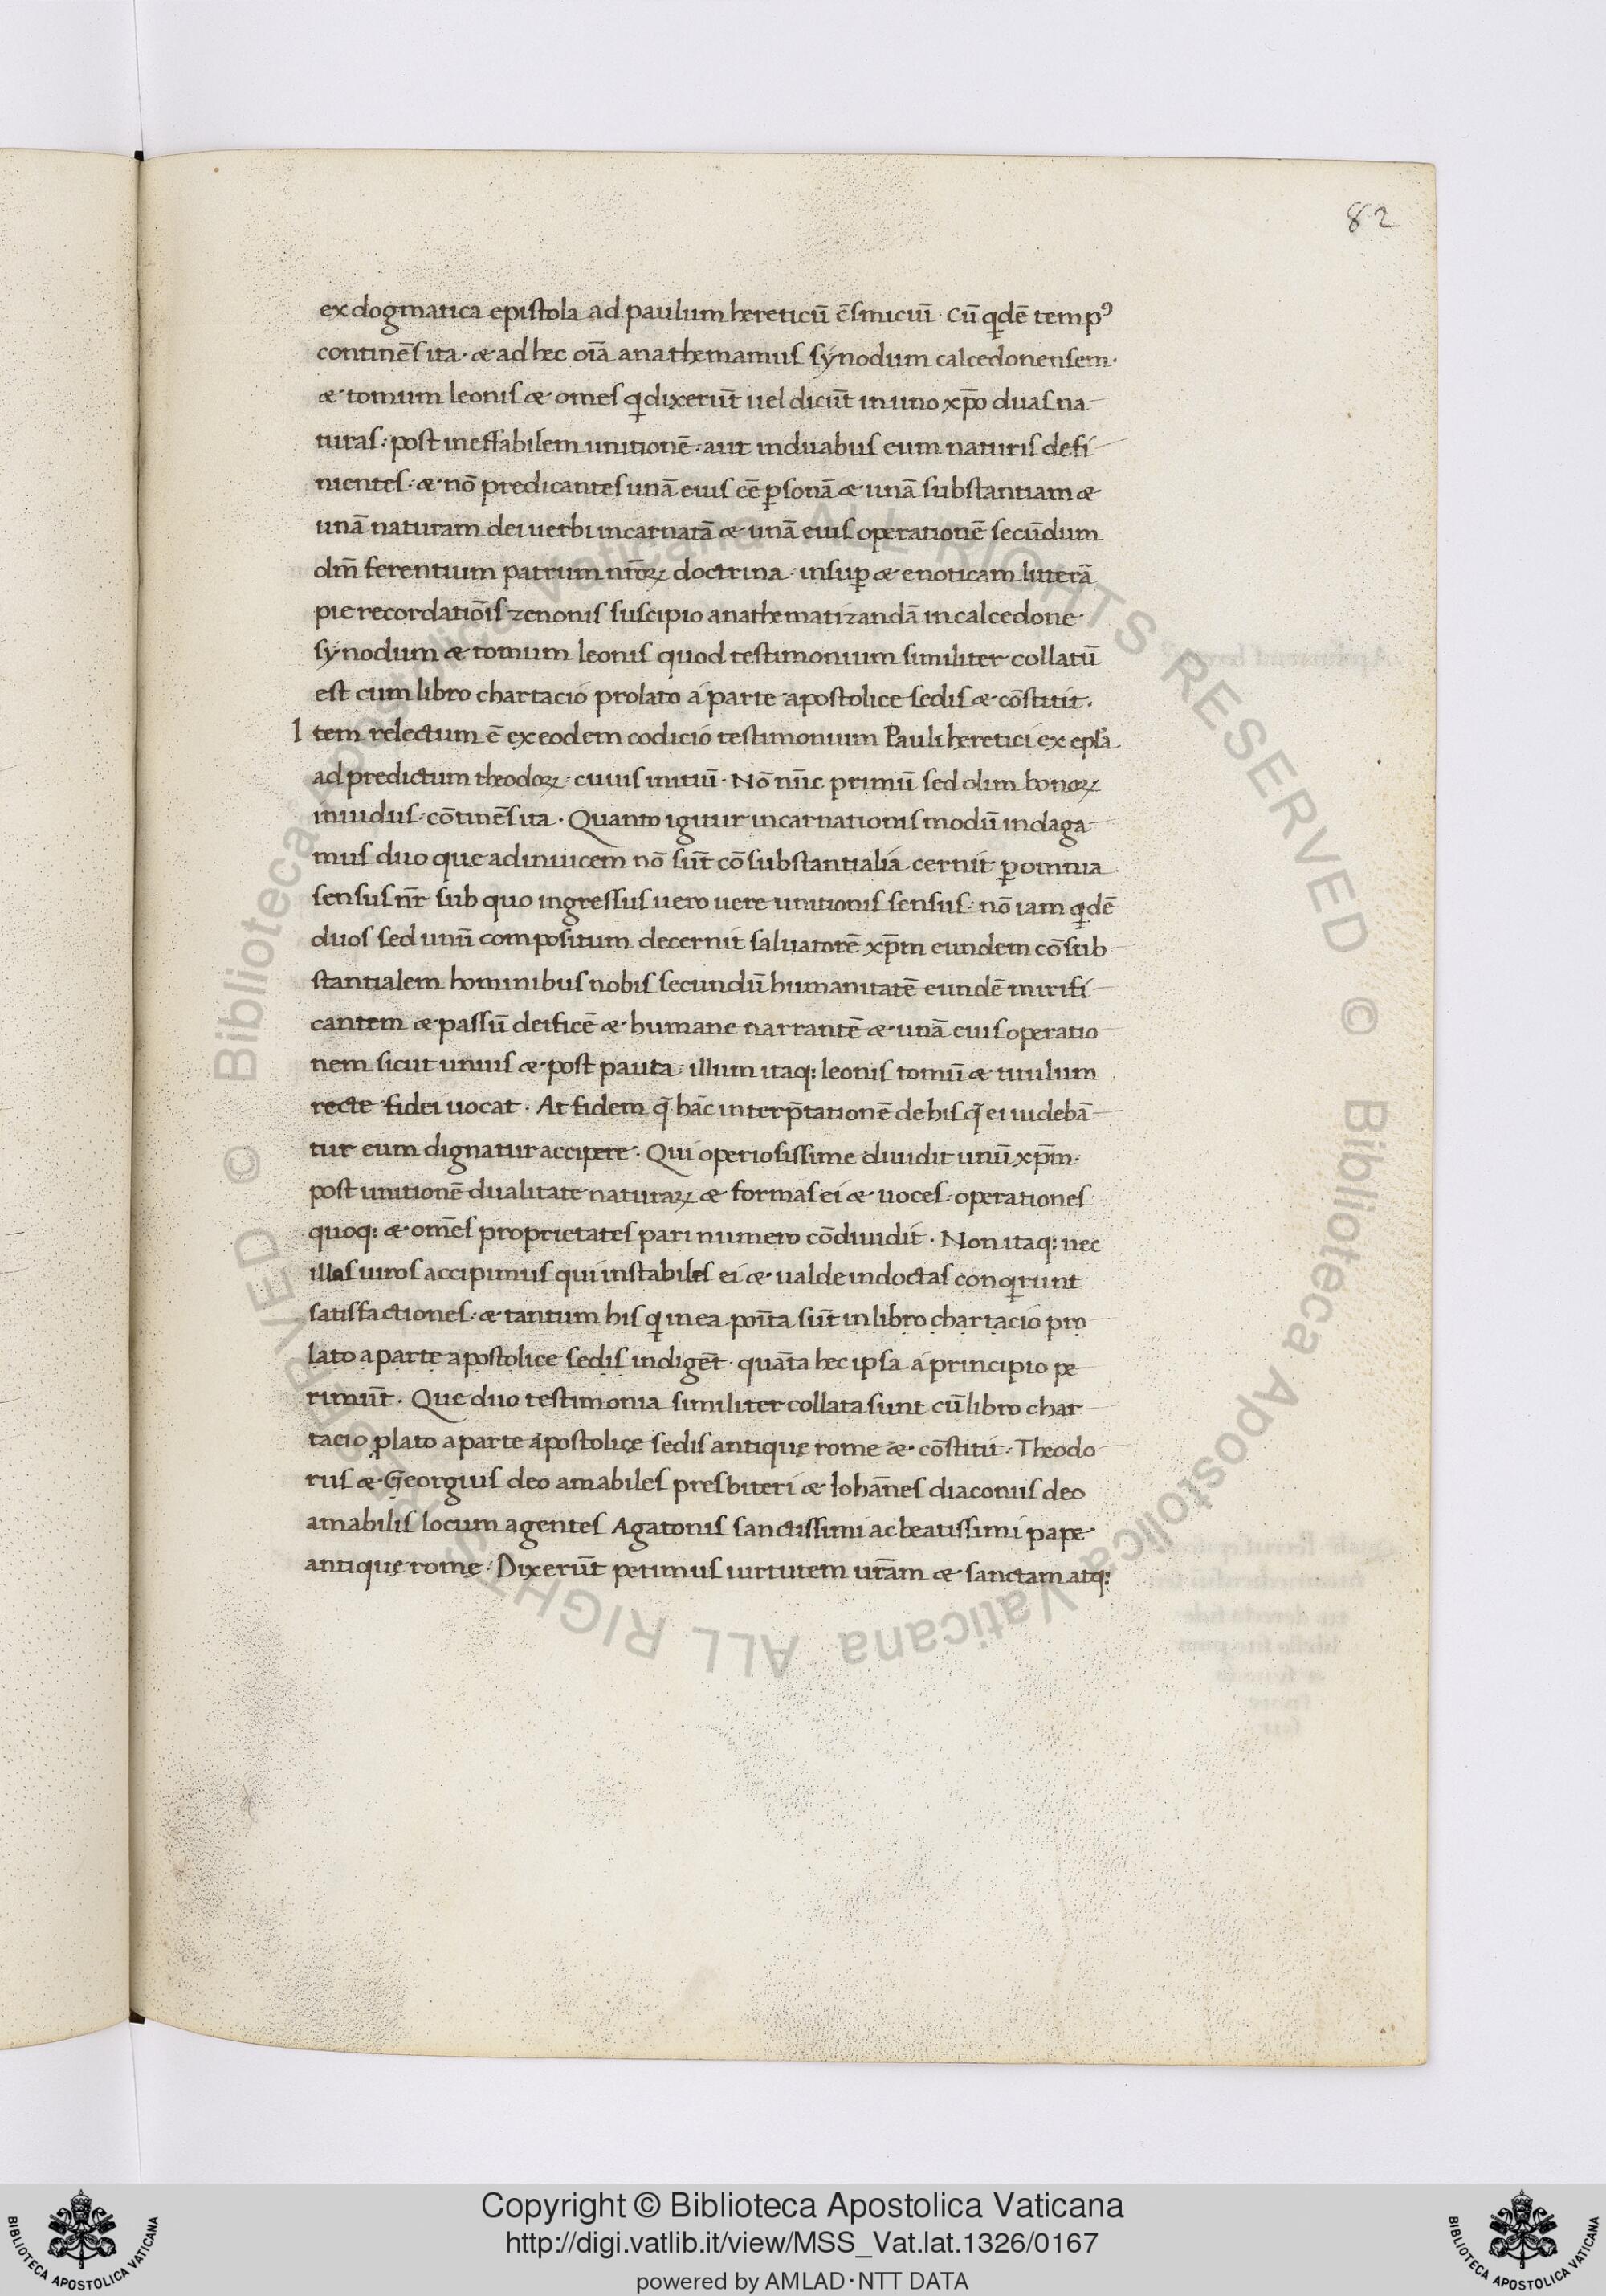 82
ex dogmatica epistola ad paulum hereticū c̄smicuī· cū qͥdē tempꝰ
continēs ita· æ ad hec oīa anathemamus sẏnodum calcedonensem·
æ tomum leonis æ omes qͥ dixerūt uel dicūt in uno xp̄o duas na
turas· post ineffabilem unitionē· aut induabus eum naturis defi
nientes· æ nō predicantes unā eius eē ꝑsonā æ unā substantiam æ
unā naturam dei uerbi incarnatā æ unā eius operationē secūdum
dm̄ ferentium patrum nr̄oꝝ doctrina· insuꝑ æ enoticam litterā
pie recordatiōis zenonis suscipio anathematizandā in calcedone
sẏnodum æ tomum leonis quod testimonium similiter collatū
est cum libro chartacio prolato a parte apostolice sedis æ cōstitit·
Item relectum ē ex eodem codicio testimonium Pauli heretici ex epl̄a
ad predictum theodoꝝ· cuius initiū· Nō nūc primū sed olim bonoꝝ
inuidus· cōtinēs ita· Quanto igitur incarnationis modū indaga
mus duo que adinuicem nō sūt cōsubstantialia cernit ꝑ omnia
sensus nr̄ sub quo ingressus uero uere unitionis sensus· nō iam qͥdē
duos sed unū compositum decernit saluatorē xp̄m eundem cōsub
stantialem hominibus nobis secundū humanitatē eundē mirifi
cantem æ passū deificē æ humane narrantē æ unā eius operatio
nem sicut unius æ post pauta· illum itaq: leonis tomū æ titulum
recte fidei uocat· At fidem q̄ hāc interp̄tationē de his q̄ ei uidebā
tur eum dignatur accipere· Qui operiosissime diuidit unū xp̄m·
post unitionē dualitate naturaꝝ æ formas ei æ uoces· operationes
quoq: æ om̄es proprietates pari numero cōdiuidit· Non itaq: nec
illos uiros accipimus qui instabiles ei æ ualde indoctas conqͥrunt
satisfactiones· æ tantum his qͥ in ea poīta sūt in libro chartacio pro
lato a parte apostolice sedis indigēt· quāta hec ipsa a principio pe
rimūt· Que duo testimonia similiter collata sunt cū libro char
tacio ꝓlato a parte apostolicę sedis antique rome æ cōstitit· Theodo
rus æ Georgius deo amabiles presbiteri æ Iohānes diaconus deo
amabilis locum agentes Agatonis sanctissimi ac beatissimi pape
antique rome· Dixerūt petimus uirtutem ur̄am æ sanctam atq:
Copyright © Biblioteca Apostolica Vaticana
http://digi.vatlib.it/view/MSS_Vat.lat.1326/0167
powered by AMLAD·NTT DATA